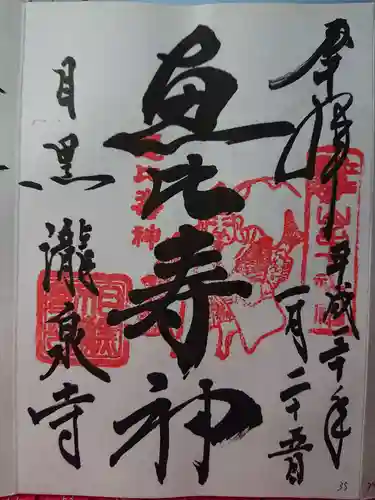 奉拝
平成二十年
一月二十五日
恵比寿神
目黒
瀧泉寺